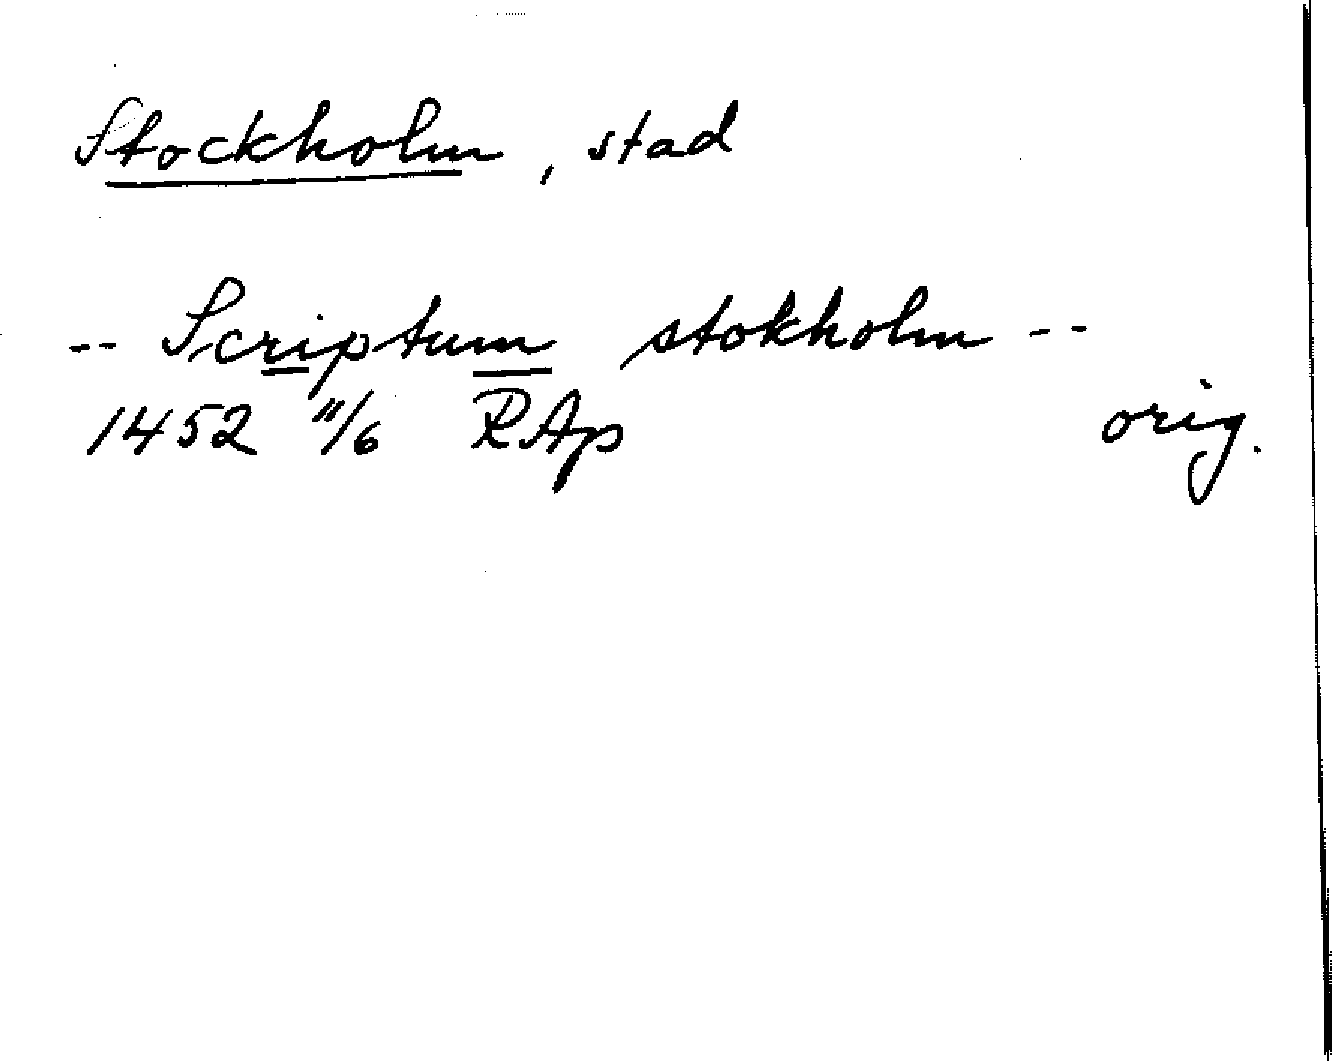 Stockholm, stad
-- Scriptum stokholm --
1452 11/6 RAp orig.